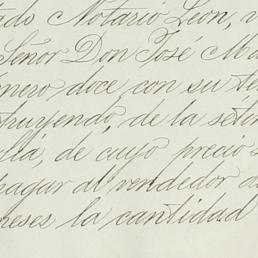 ado Notario Leon, v
Señor Don José Ma
nero doce, con su te
truyendo, de la séti
lla, de cuyo precio s
pagar al vendedor d
meses la cantidad